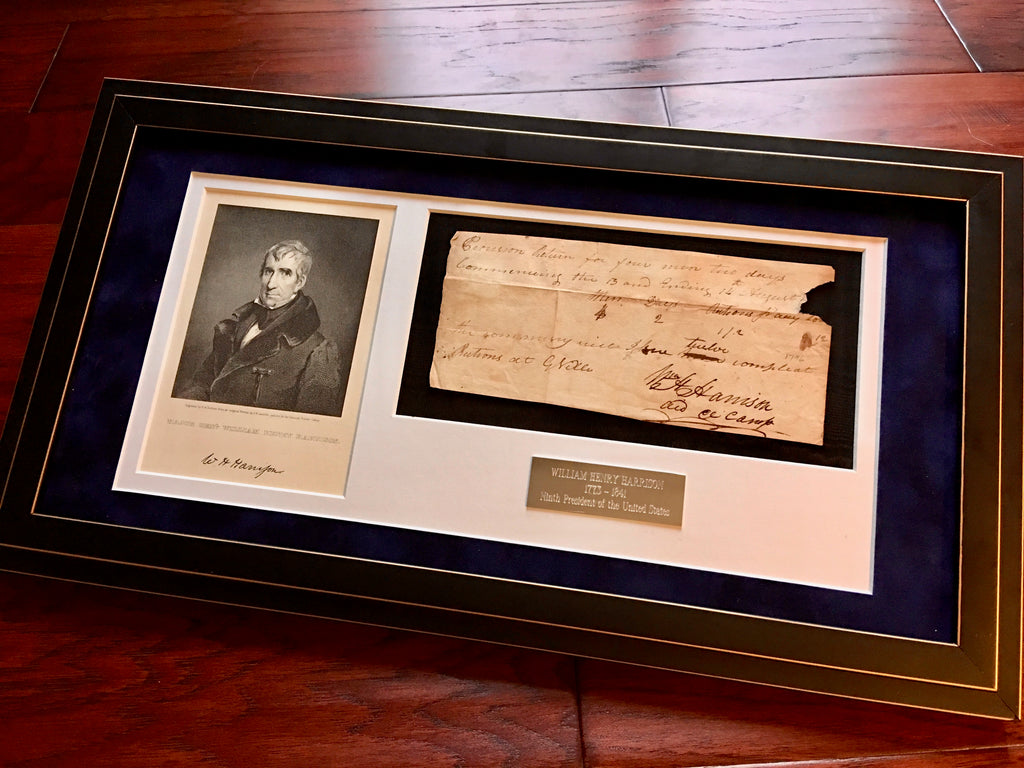 MAJOR GEN'L WILLIAM HENRY HARRISON.
W H Harrison
Provision Return for four men two days
Commencing the 13 and Ending 14th August
Men Days Rations
4 2
1/2 12
the commissary will Issue twelve compleat
Rations at GVille
Wm H Harrison
aid de Camp
WILLIAM HENRY HARRISON
1773 - 1841
Ninth President of the United States